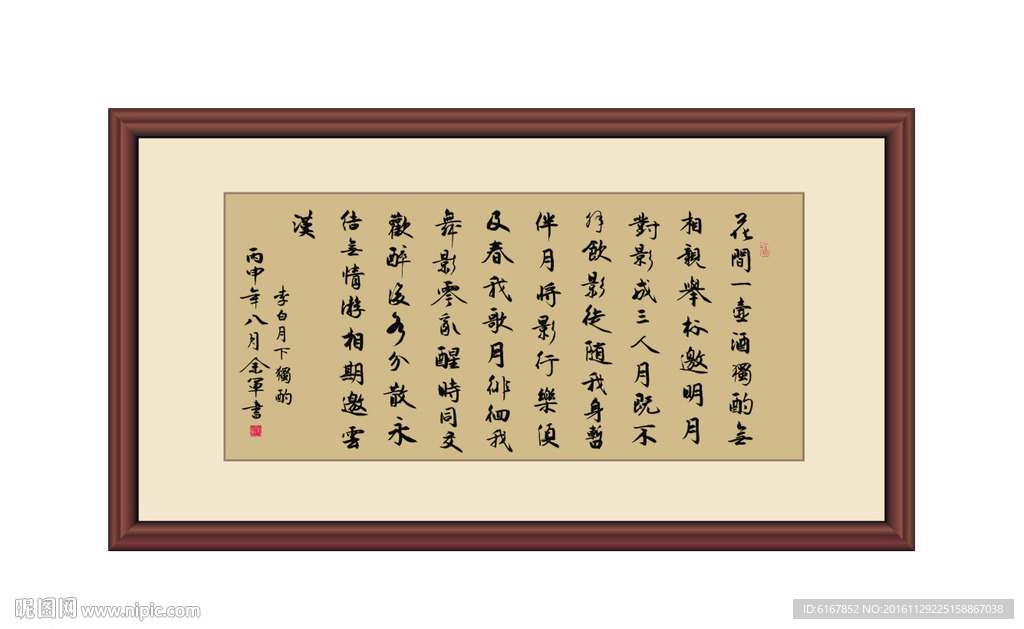 花間一壺酒獨酌無
相親舉杯邀明月
對影成三人月既不
解飲影徒隨我身暫
伴月將影行樂須
及春我歌月徘徊我
舞影零亂醒時同交
歡醉後各分散永
結無情遊相期邈雲
漢
李白月下獨酌
丙申年八月金軍書
昵图网 www.nipic.com
ID:6167852 NO:20161129225158867038